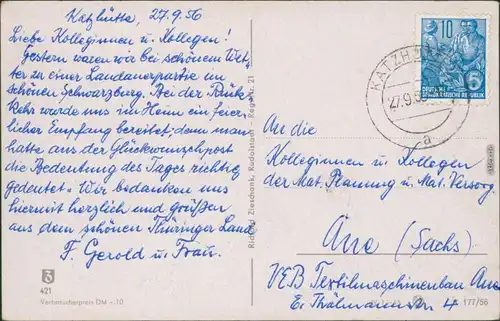 Katzhütte, 27.9.56
Liebe Kolleginnen u. Kollegen!
Gestern waren wir bei schönem Wet-
ter zu einer Landauerpartie im
schönen Schwarzburg. Bei der Rück-
kehr wurde uns im Heim ein feier-
licher Empfang bereitet; denn man
hatte aus der Glückwunschpost
die Bedeutung des Tages richtig
gedeutet. Wir bedanken uns
hiermit herzlich und grüßen
aus dem schönen Thüringer Land
F. Gerold u. Frau.
3
421
Verbraucherpreis DM -.10
Richard Zieschank, Rudolstadt
10
DEUTSCHE
DEMOKRATISCHE REPUBLIK
KATZH
27.9.56
a
An die
Kolleginnen u. Kollegen
der Mat. Planung u. Mat. Versorg.
Aue (Sachs)
VEB Textilmaschinenbau Aue
E. Thälmannstr 4
177/56